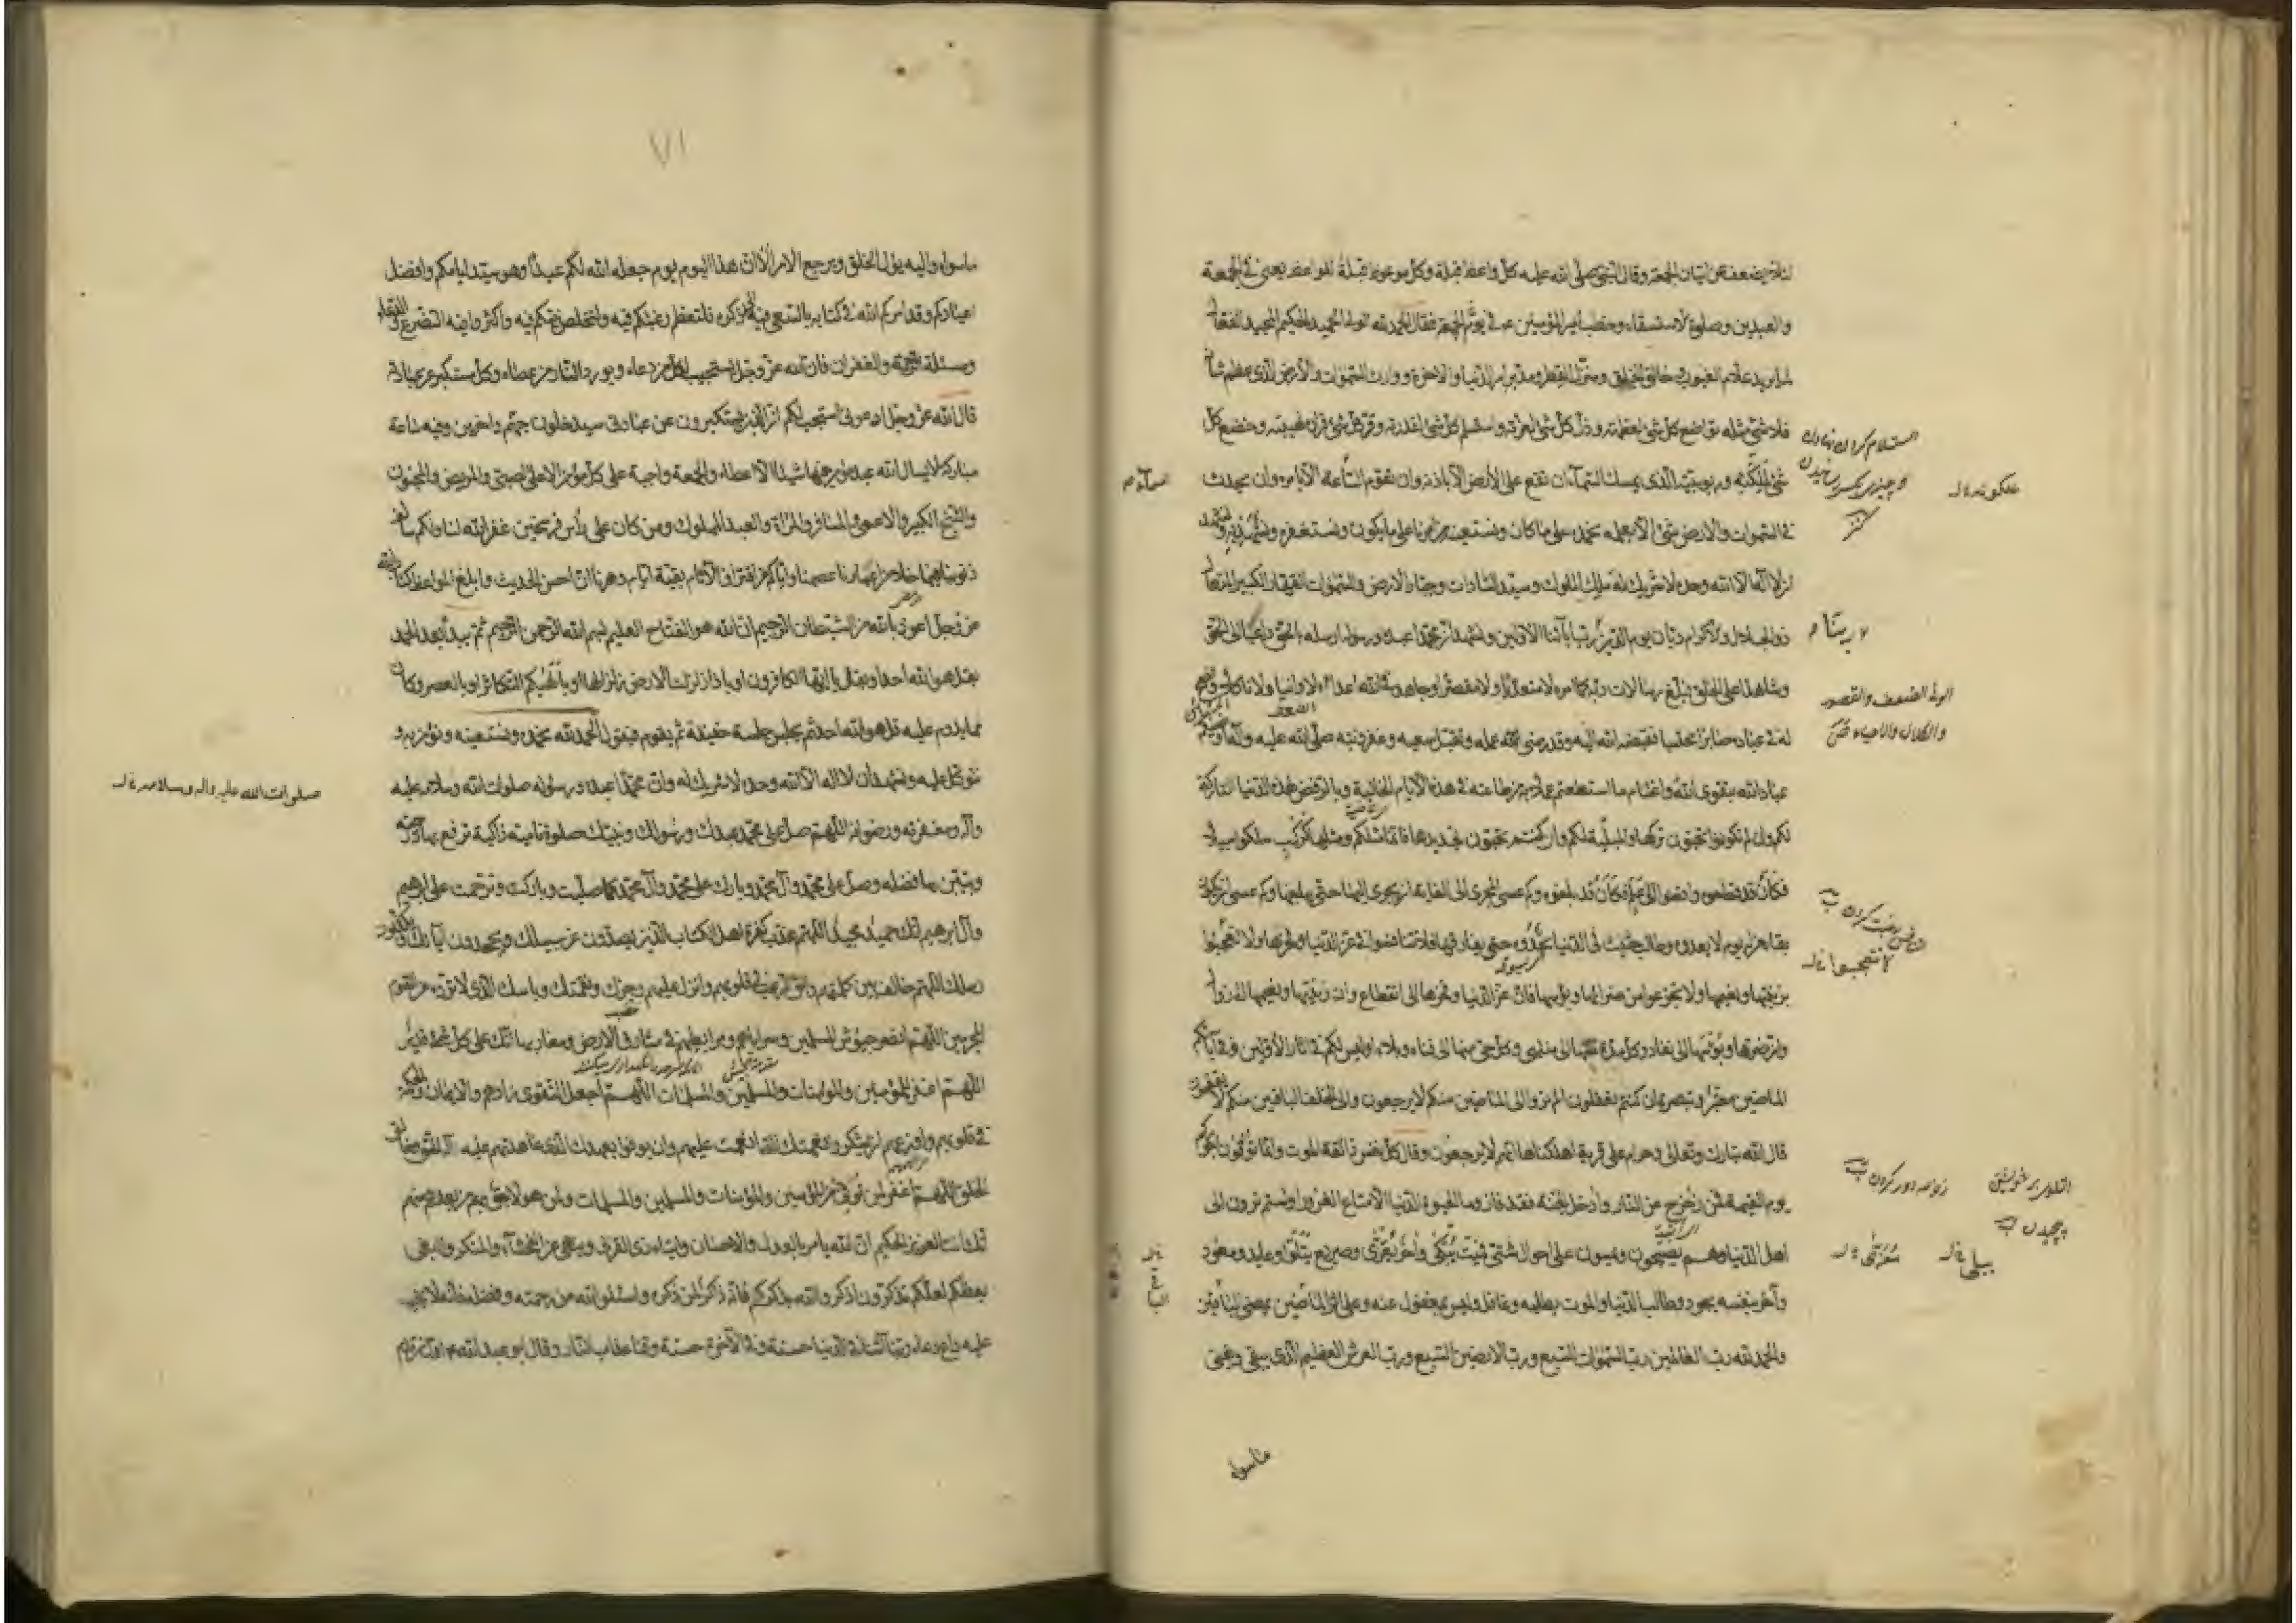 وقال النبي صلى الله عليه كل واعظ قبلة وكل موعوظ قبلة للواعظ يعنى في الجمعة
والعيدين وصلوة الاستسقاء وخطب امير المؤمنين ع في يوم الجمعة فقال الحمد لله الولى الحميد الحكيم المجيد الفعال
لما يريد علام الغيوب خالق الخلق ومنزل القطر ومدبر امر الدنيا والاخرة ووارث السموات والأرض الذى عظم شأنه
فلا شئ مثله تواضع كل شئ لعظمته وذل كل شئ لعزته واستسلم كل شئ لقدرته وقر كل شئ قراره لهيبته وخضع كل
شئ لملكته وربوبيته الذى يمسك السماء ان تقع على الأرض الا باذنه وان تقوم الساعة الا بامره وان يحدث
في السموات والارض شئ الا بعلمه نحمده على ما كان ونستعينه من امرنا على ما يكون ونستغفره ونستهديه ونشهد
ان لا اله الا الله وحده لا شريك له ملك الملوك وسيد السادات وجبار الارض والسموات القهار الكبير المتعال
ذو الجلال والاكرام ديان يوم الدين رب آبائنا الاولين ونشهد ان محمدا عبده ورسوله ارسله بالحق داعيا الى الحق
وشاهدا على الخلق فبلغ رسالات ربه كما امره لا متعديا ولا مقصرا وجاهد في الله اعداءه لا وانيا ولا ناكلا ونصح
له في عباده صابرا محتسبا فقبضه الله اليه وقد رضى عمله وتقبل سعيه وغفر ذنبه صلى الله عليه وآله اوصيكم
عباد الله بتقوى الله واغتنام ما استطعتم عملا به من طاعته في هذه الايام الخالية وبالرفض لهذه الدنيا التاركة
لكم وان لم تكونوا تحبون تركها والمبلية لكم وان كنتم تحبون تجديدها فانما مثلكم ومثلها كركب سلكوا سبيلا
فكأن قد قطعوه وافضوا الى علم فكأن قد بلغوه وكم عسى المجرى الى الغاية ان يجرى اليها حتى يبلغها وكم عسى ان يكون
بقاء من له يوم لا يعدوه وطالب حثيث في الدنيا يحدوه حتى يفارقها فلا تتنافسوا في عز الدنيا وفخرها ولا تعجبوا
بزينتها ونعيمها ولا تجزعوا من ضرائها وبؤسها فان عز الدنيا وفخرها الى انقطاع وان زينتها ونعيمها الى زوال
وان ضرها وبؤسها الى نفاد وكل مدة منها الى منتهى وكل حى منها الى فناء وبلاء اوليس لكم في اثار الأولين وفى آبائكم
الماضين معتبر وتبصرة ان كنتم تعقلون الم تروا الى الماضين منكم لا يرجعون والى الخلف الباقين منكم لا يقفون
قال الله تبارك وتعالى وحرام على قرية اهلكناها انهم لا يرجعون وقال كل نفس ذائقة الموت وانما توفون اجوركم
يوم القيمة فمن زحزح عن النار وأدخل الجنة فقد فاز وما الحيوة الدنيا الا متاع الغرور اولستم ترون الى
اهل الدنيا وهم يصبحون ويمسون على احوال شتى فميت يبكى وآخر يعزى وصريع يتلوى وعائد ومعود
وآخر بنفسه يجود وطالب الدنيا والموت يطلبه وغافل وليس بمغفول عنه وعلى اثر الماضين يمضى الباقين
والحمد لله رب العالمين رب السموات السبع ورب الارضين السبع ورب العرش العظيم الذى يبقى ويفنى
ماسواه
الونى الضعف والفتور
والكلال والاعياء
زحزحه دور كردن
٧١
ماسواه واليه يؤل الخلق ويرجع الامر الا ان هذا اليوم يوم جعله الله لكم عيدا وهو سيد ايامكم وافضل
اعيادكم وقد امركم الله في كتابه بالسعى فيه الى ذكره فلتعظم رغبتكم فيه ولتخلص نيتكم فيه واكثروا فيه التضرع والدعاء
ومسئلة الرحمة والغفران فان الله عز وجل يستجيب لكل من دعاه ويورد النار من عصاه وكل مستكبر عن عبادته
قال الله عز وجل ادعونى استجب لكم ان الذين يستكبرون عن عبادتى سيدخلون جهنم داخرين وفيه ساعة
مباركة لا يسال الله عبد مؤمن فيها شيئا الا اعطاه والجمعة واجبة على كل مؤمن الا على الصبى والمريض والمجنون
والشيخ الكبير والاعمى والمسافر والمراة والعبد المملوك ومن كان على رأس فرسخين غفر الله لنا ولكم سالف
ذنوبنا فيما خلا من اعمارنا وعصمنا واياكم من اقتراف الآثام بقية ايام دهرنا ان احسن الحديث وابلغ المواعظ كتاب الله
عز وجل اعوذ بالله من الشيطان الرجيم ان الله هو الفتاح العليم بسم الله الرحمن الرحيم ثم يبدأ بعد الحمد
بقل هو الله احد او بقل يا ايها الكافرون او باذا زلزلت الارض زلزالها او بألهيكم التكاثر او بالعصر وكان
مما يدوم عليه قل هو الله احد ثم يجلس جلسة خفيفة ثم يقوم فيقول الحمد لله نحمده ونستعينه ونؤمن به و
نتوكل عليه ونشهد ان لا اله الا الله وحده لا شريك له وان محمدا عبده ورسوله صلوات الله وسلامه عليه
وآله ومغفرته ورضوانه اللهم صل على محمد عبدك ورسولك ونبيك صلوة نامية زاكية ترفع بها درجته
وتبين بها فضله وصل على محمد وآل محمد وبارك على محمد وآل محمد كما صليت وباركت وترحمت على ابرهيم
وآل ابرهيم انك حميد مجيد اللهم عذب كفرة اهل الكتاب الذين يصدون عن سبيلك ويجحدون آياتك ويكذبون
رسلك اللهم خالف بين كلمتهم والق الرعب في قلوبهم وانزل عليهم رجزك ونقمتك وباسك الذى لا ترده عن القوم
المجرمين اللهم انصر جيوش المسلمين وسراياهم ومرابطيهم في مشارق الارض ومغاربها انك على كل شئ قدير
اللهم اغفر للمؤمنين والمؤمنات والمسلمين والمسلمات اللهم اجعل التقوى زادهم والايمان والحكمة
في قلوبهم واوزعهم ان يشكروا نعمتك التى انعمت عليهم وان يوفوا بعهدك الذى عاهدتهم عليه اله الحق وخالق
الخلق اللهم اغفر لمن توفى من المؤمنين والمؤمنات والمسلمين والمسلمات ولمن هو لاحق بهم من بعدهم منهم
انك انت العزيز الحكيم ان الله يامر بالعدل والاحسان وايتاء ذى القربى وينهى عن الفحشاء والمنكر والبغى
يعظكم لعلكم تذكرون اذكروا الله يذكركم فانه ذاكر لمن ذكره واسئلوا الله من رحمته وفضله فانه لا يخيب
عليه داع دعاه ربنا آتنا في الدنيا حسنة وفي الآخرة حسنة وقنا عذاب النار وقال ابو عبد الله ع
صلوات الله عليه واله وسلامه